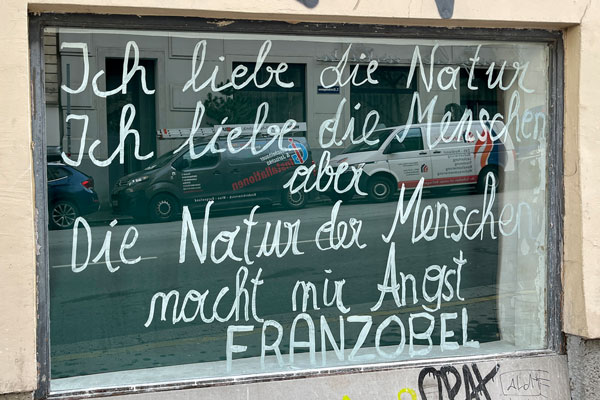 Ich liebe die Natur
Ich liebe die Menschen
aber
Die Natur der Menschen
macht mir Angst
FRANZOBEL